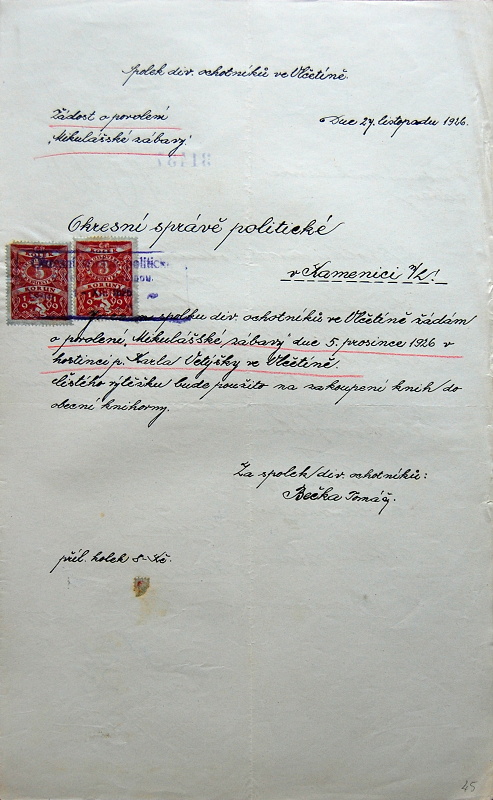 Spolek div. ochotníků ve Vlčetíně.
Žádost o povolení
„Mikulášské zábavy.“
Dne 27. listopadu 1926.
Okresní správě politické
v Kamenici n/L.
spolku div. ochotníků ve Vlčetíně žádám
o povolení „Mikulášské zábavy“ dne 5. prosince 1926 v
hostinci p. Karla Votýšky ve Vlčetíně.
čistého výtěžku bude použito na zakoupení knih do
obecní knihovny.
Za spolek div. ochotníků:
Bečka Tomáš.
příl. kolek 8.- Kč.
45